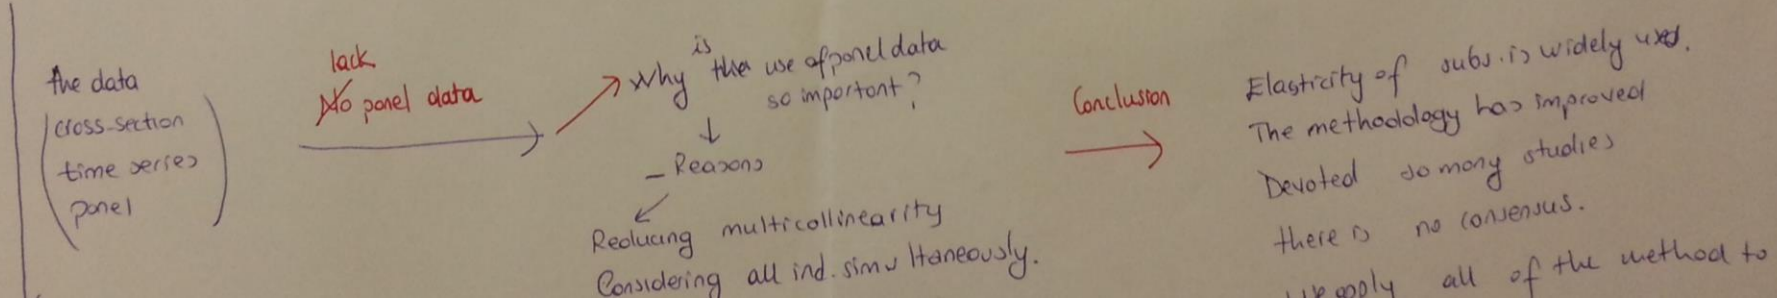 the data
(cross-section
time series
panel)
lack
No panel data
is
Why the use of panel data
so important?
- Reasons
Reducing multicollinearity
Considering all ind. simultaneously.
Conclusion
Elasticity of subs. is widely used.
The methodology has improved
Devoted so many studies
there is no consensus.
apply all of the method to